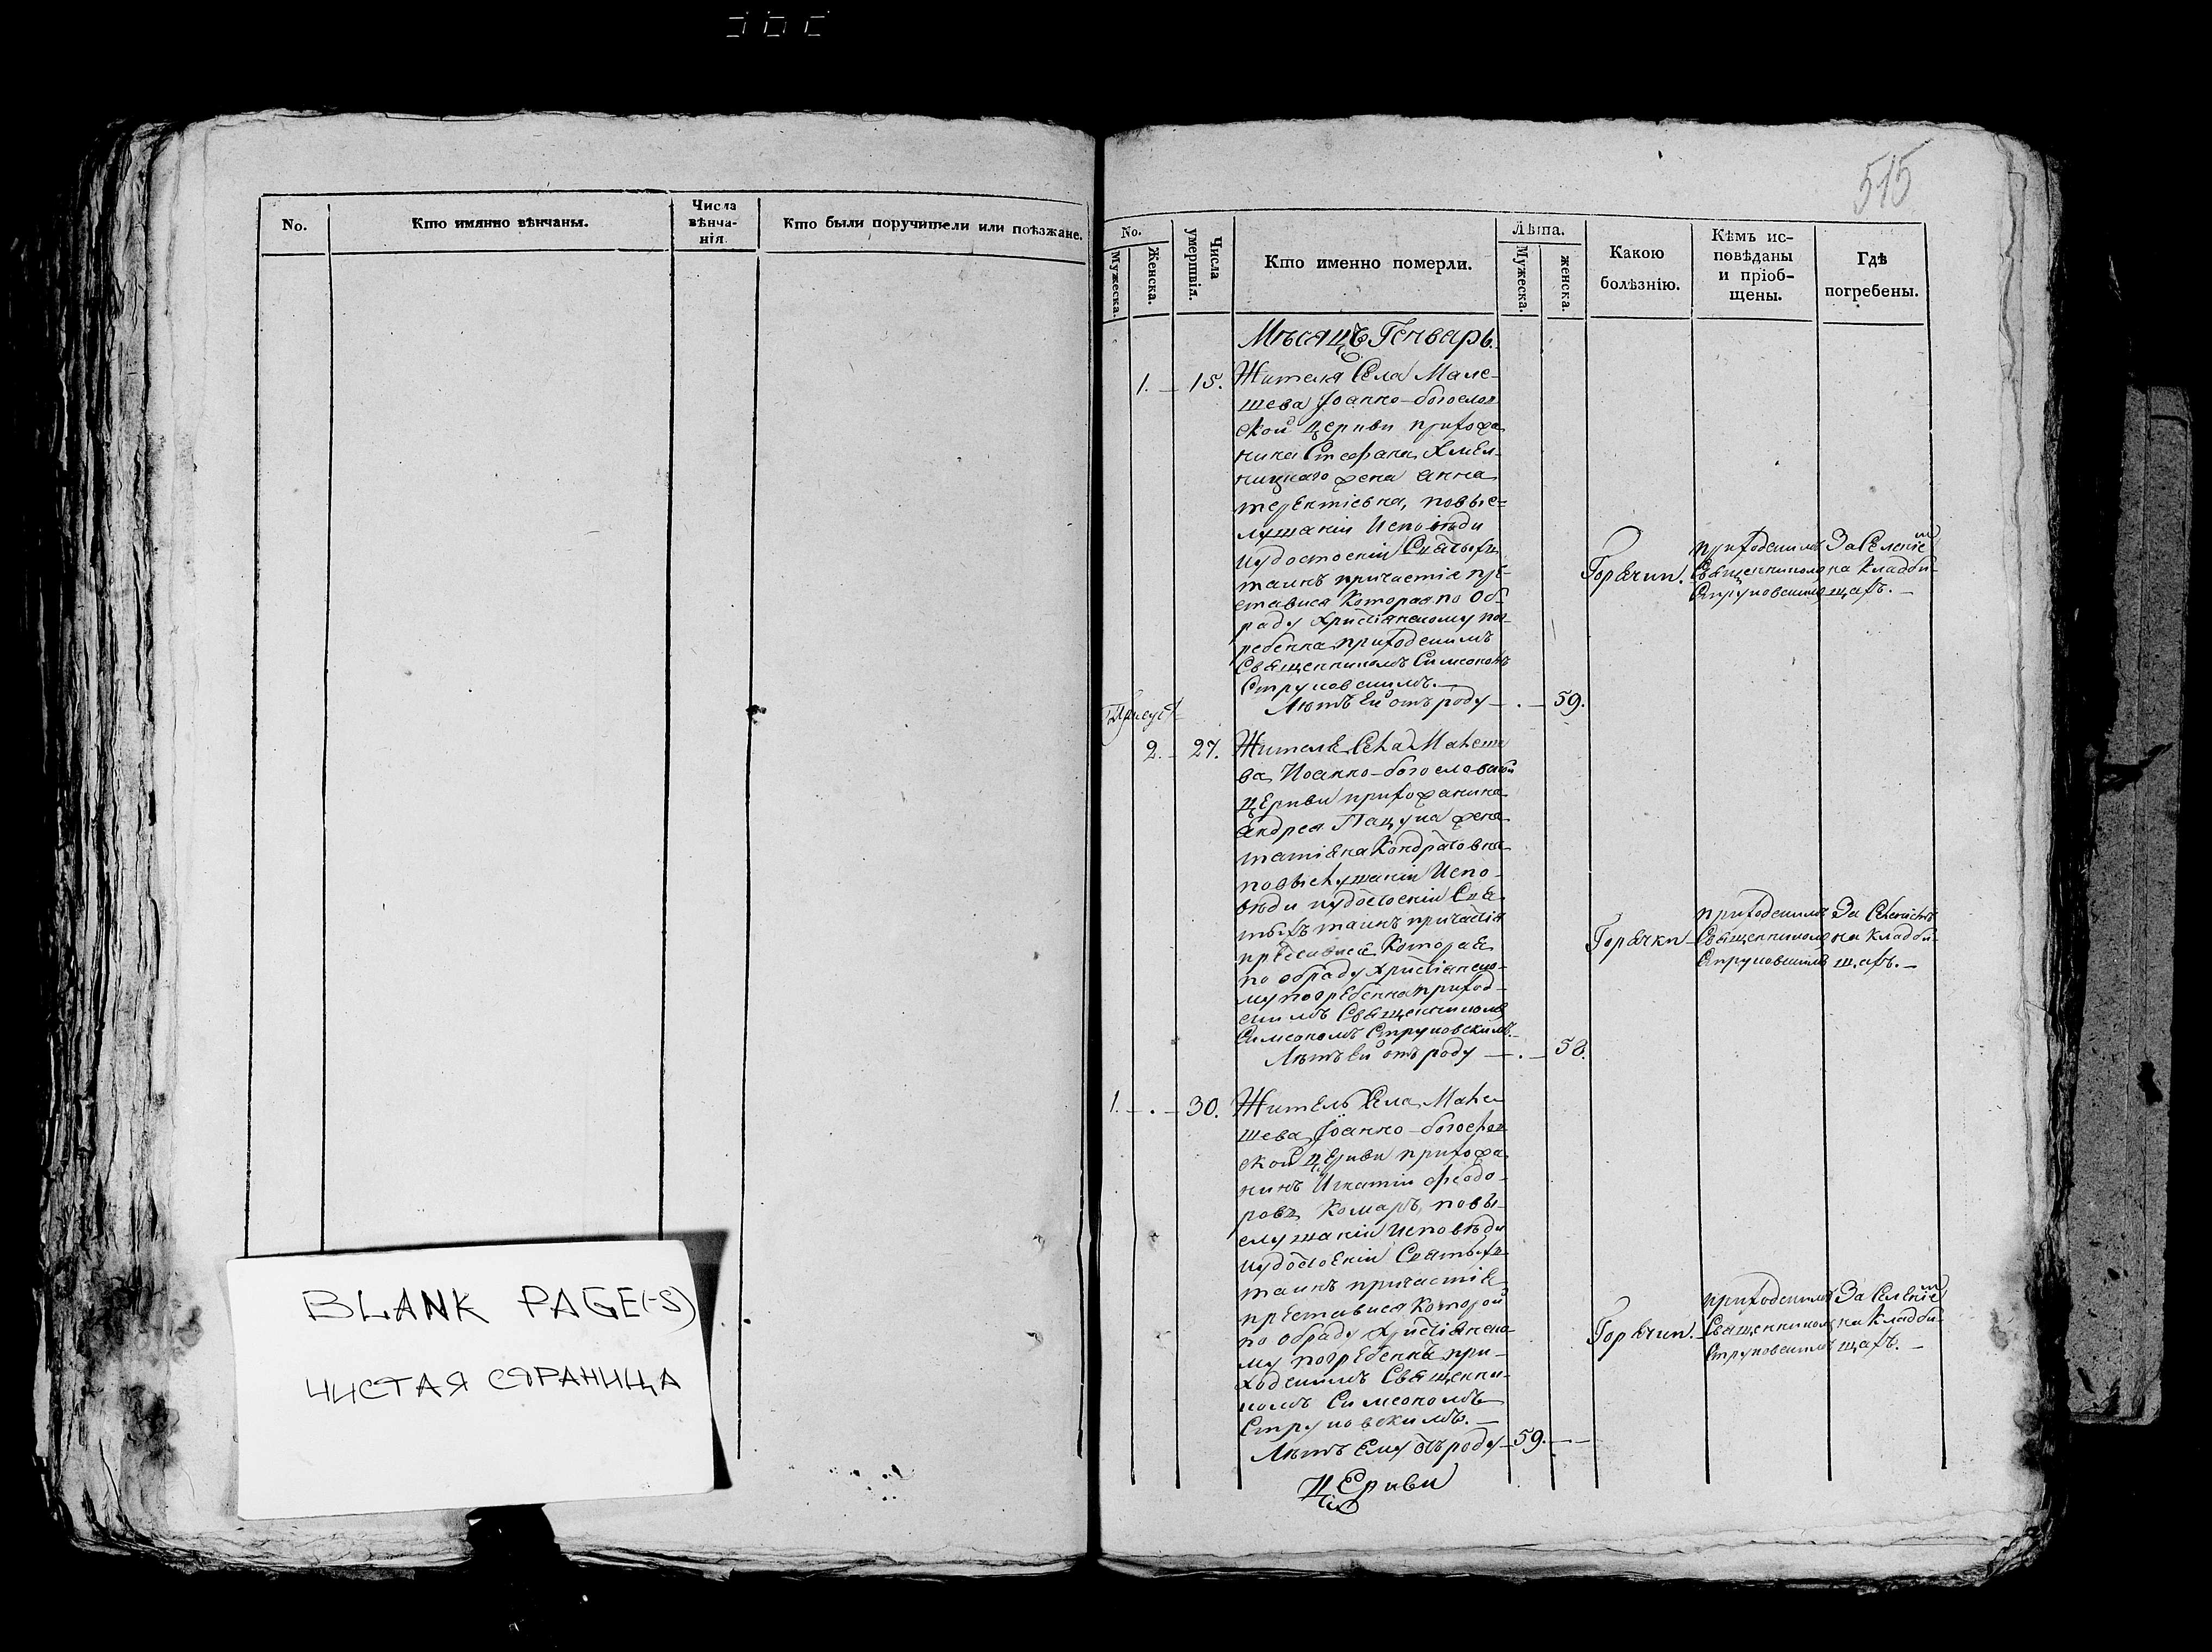 No.
Кто имянно вѣнчаны.
Числа вѣнча- нія.
Кто были поручители или поѣзжане.
BLANK PAGE(-S)
ЧИСТАЯ СТРАНИЦА
515
No.
Мужеска.
Женска.
Числа умертвія.
Кто именно померли.
Лѣта.
Мужеска.
женска.
Какою болѣзнію.
Кѣмъ ис- повѣданы и пріоб- щены.
Гдѣ погребены.
Мѣсяцъ Генварь.
1. – 15. Жителя Села Мале-
шева Іоанно-богослов
ской Церкви прихожа
нина Стефана Хмел-
ницкого жена анна
терентіевна, повыс-
лушаніи Исповѣди
иудостоеніи Святыхъ
таинъ причастія пре-
ставися Которая по Об-
ряду Христіянскому пог-
ребенна приходскимъ
Священникомъ Симеономъ
Струковскимъ.
Лѣтъ Ей отъ роду – . – 59.
Горячки.
приходскимъ
Священникомъ
Струковскимъ
За Селеніем
на кладби-
щахъ. –
2. – 27. Жителя Села Малеше
ва Иоанно-богословской
Церкви прихожанина
Андрея Пацука жена
татіяна Кондратовна
повыслушаніи Испо-
вѣди иудостоеніи Свя
тыхъ таинъ причастія
преставися Которая
по обряду Христіянско-
му погребенна приход-
скимъ Священникомъ
Симеономъ Струковскимъ.
Лѣтъ Ей отъ роду – . – 58.
Горячки
приходскимъ
Священникомъ
Струковскимъ
За Селеніемъ
на кладби-
щахъ. –
1. – . – 30. Житель Села Мале
шева Іоанно-богослов
ской Церкви прихожа
нинъ Игнатій Феодо-
ровъ Комаръ, повы-
слушаніи Исповѣди
иудостоеніи Святыхъ
таинъ причастія
преставися Которой
по обряду Христіянско-
му погребенъ при-
ходскимъ Священни-
комъ Симеономъ
Струковскимъ. –
Лѣтъ Ему отъ роду – 59. – –
Горячки. –
приходскимъ
Священникомъ
Струковскимъ
За Селеніем
на кладби-
щахъ. –
Церкви